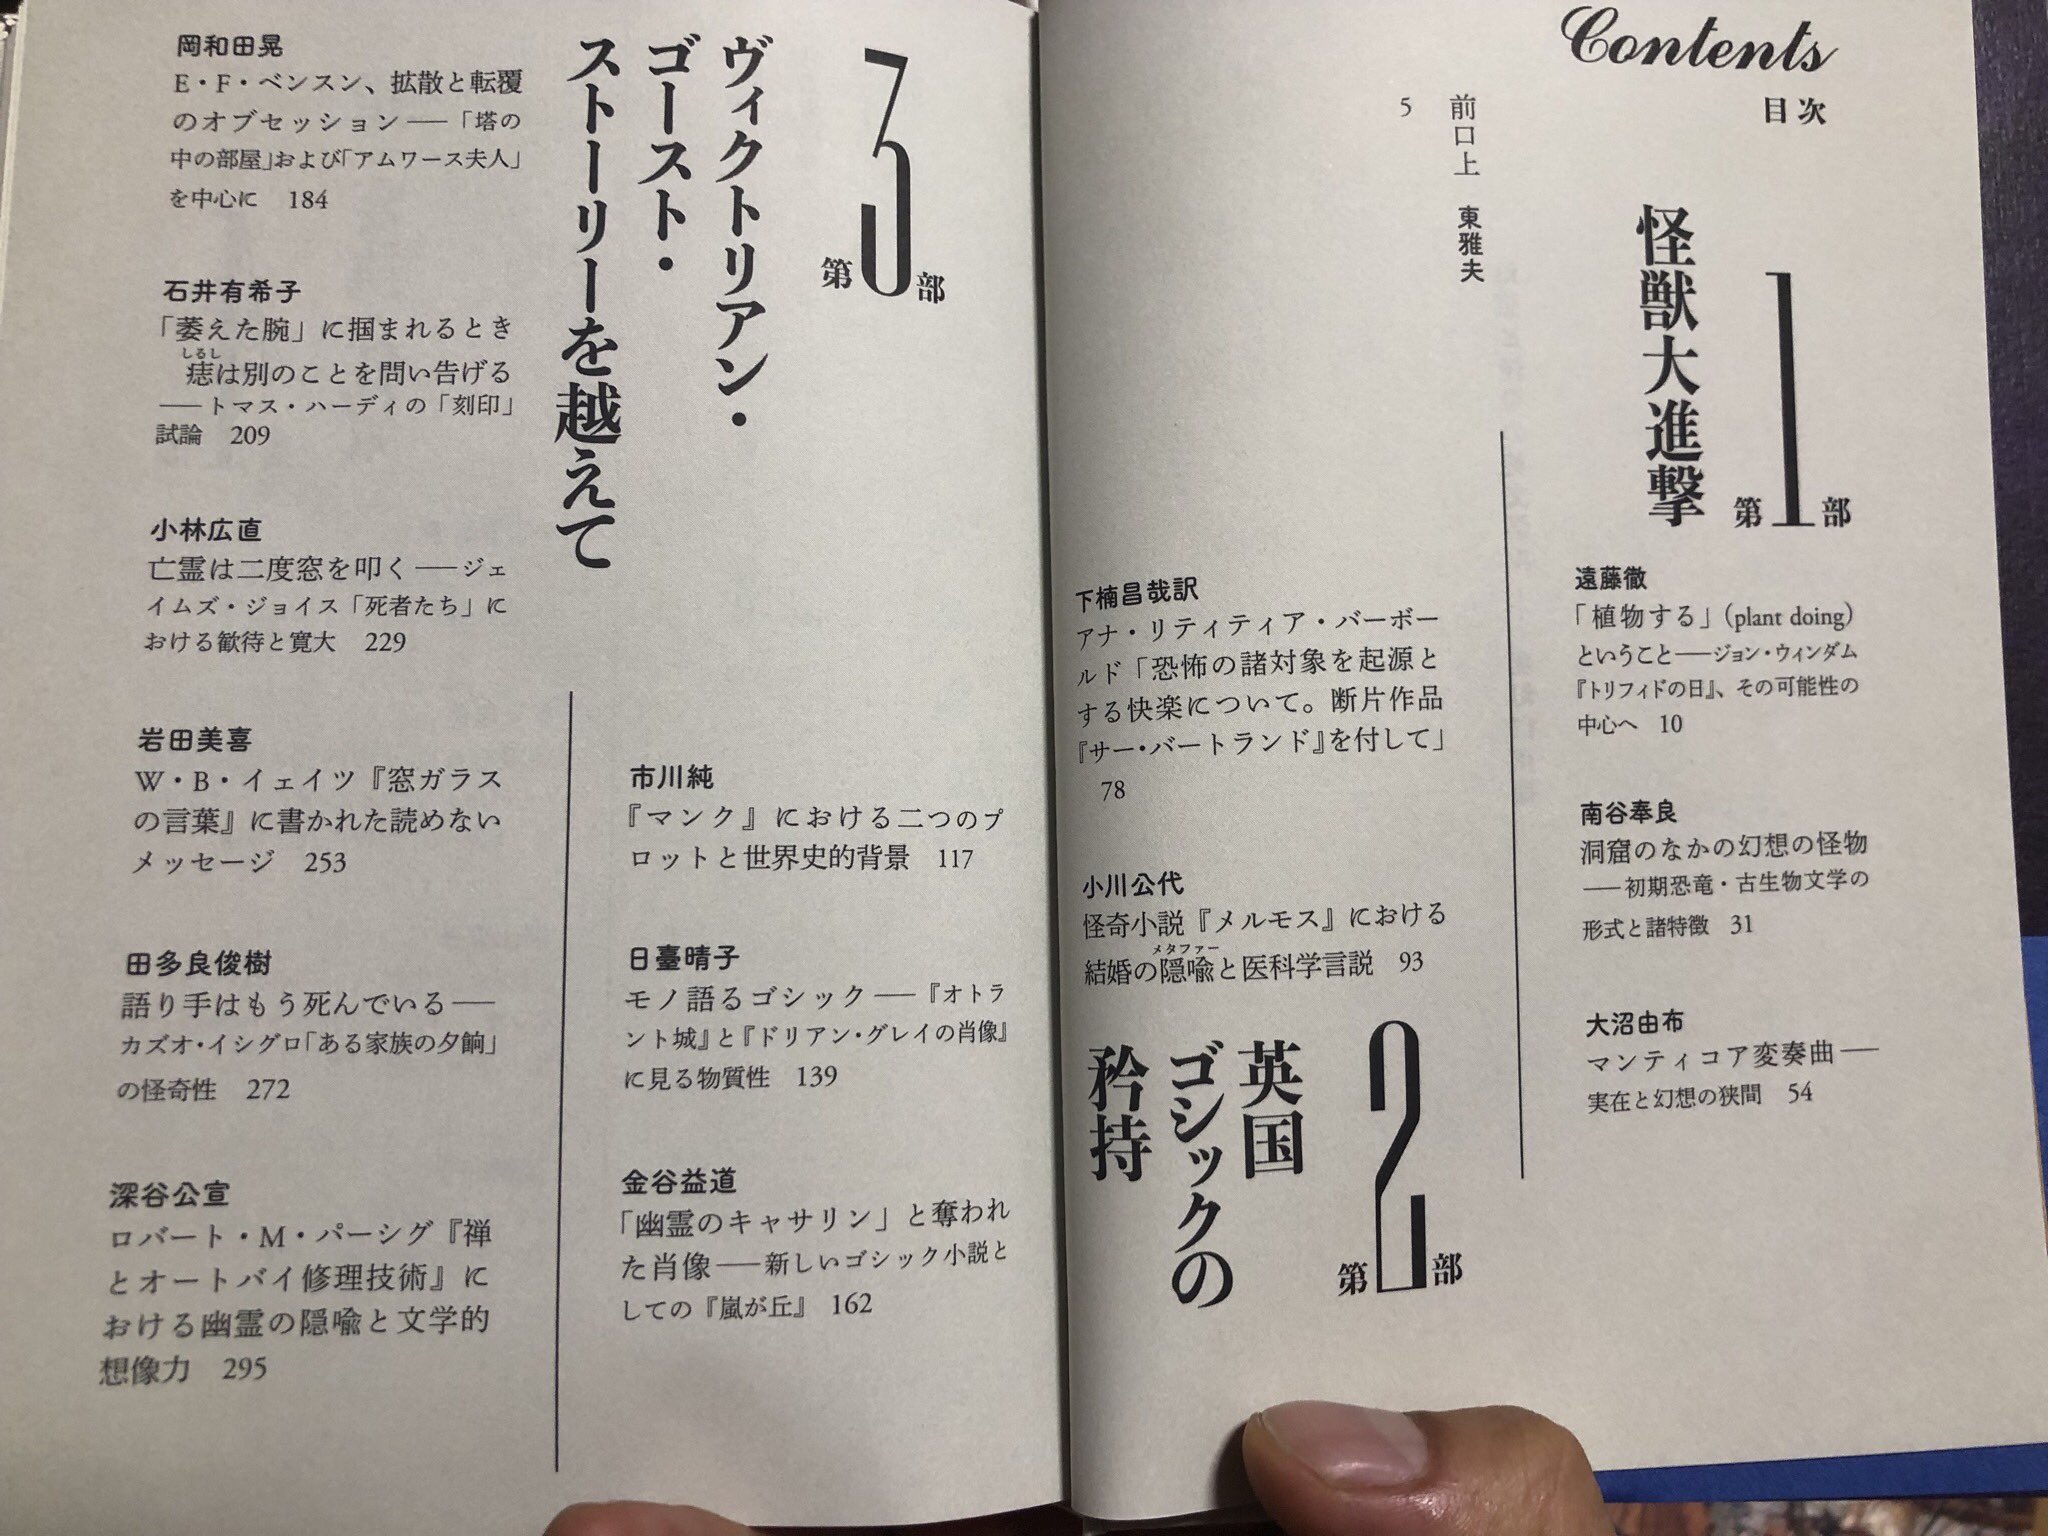 Contents
目次
前口上 東雅夫
5
第1部
怪獣大進撃
遠藤徹
「植物する」(plant doing)
ということ——ジョン・ウィンダム
『トリフィドの日』、その可能性の
中心へ 10
南谷奉良
洞窟のなかの幻想の怪物
——初期恐竜・古生物文学の
形式と諸特徴 31
大沼由布
マンティコア変奏曲——
実在と幻想の狭間 54
第2部
英国
ゴシックの
矜持
下楠昌哉訳
アナ・リティティア・バーボー
ルド「恐怖の諸対象を起源と
する快楽について。断片作品
『サー・バートランド』を付して」
78
小川公代
怪奇小説『メルモス』における
メタファー
結婚の隠喩と医科学言説 93
市川純
『マンク』における二つのプ
ロットと世界史的背景 117
日臺晴子
モノ語るゴシック——『オトラ
ント城』と『ドリアン・グレイの肖像』
に見る物質性 139
金谷益道
「幽霊のキャサリン」と奪われ
た肖像——新しいゴシック小説と
しての『嵐が丘』 162
第3部
ヴィクトリアン・
ゴースト・
ストーリーを越えて
岡和田晃
E・F・ベンスン、拡散と転覆
のオブセッション——「塔の
中の部屋」および「アムワース夫人」
を中心に 184
石井有希子
「萎えた腕」に掴まれるとき
しるし
痣は別のことを問い告げる
——トマス・ハーディの「刻印」
試論 209
小林広直
亡霊は二度窓を叩く——ジェ
イムズ・ジョイス「死者たち」に
おける歓待と寛大 229
岩田美喜
W・B・イェイツ『窓ガラス
の言葉』に書かれた読めない
メッセージ 253
田多良俊樹
語り手はもう死んでいる——
カズオ・イシグロ「ある家族の夕餉」
の怪奇性 272
深谷公宣
ロバート・M・パーシグ『禅
とオートバイ修理技術』に
おける幽霊の隠喩と文学的
想像力 295